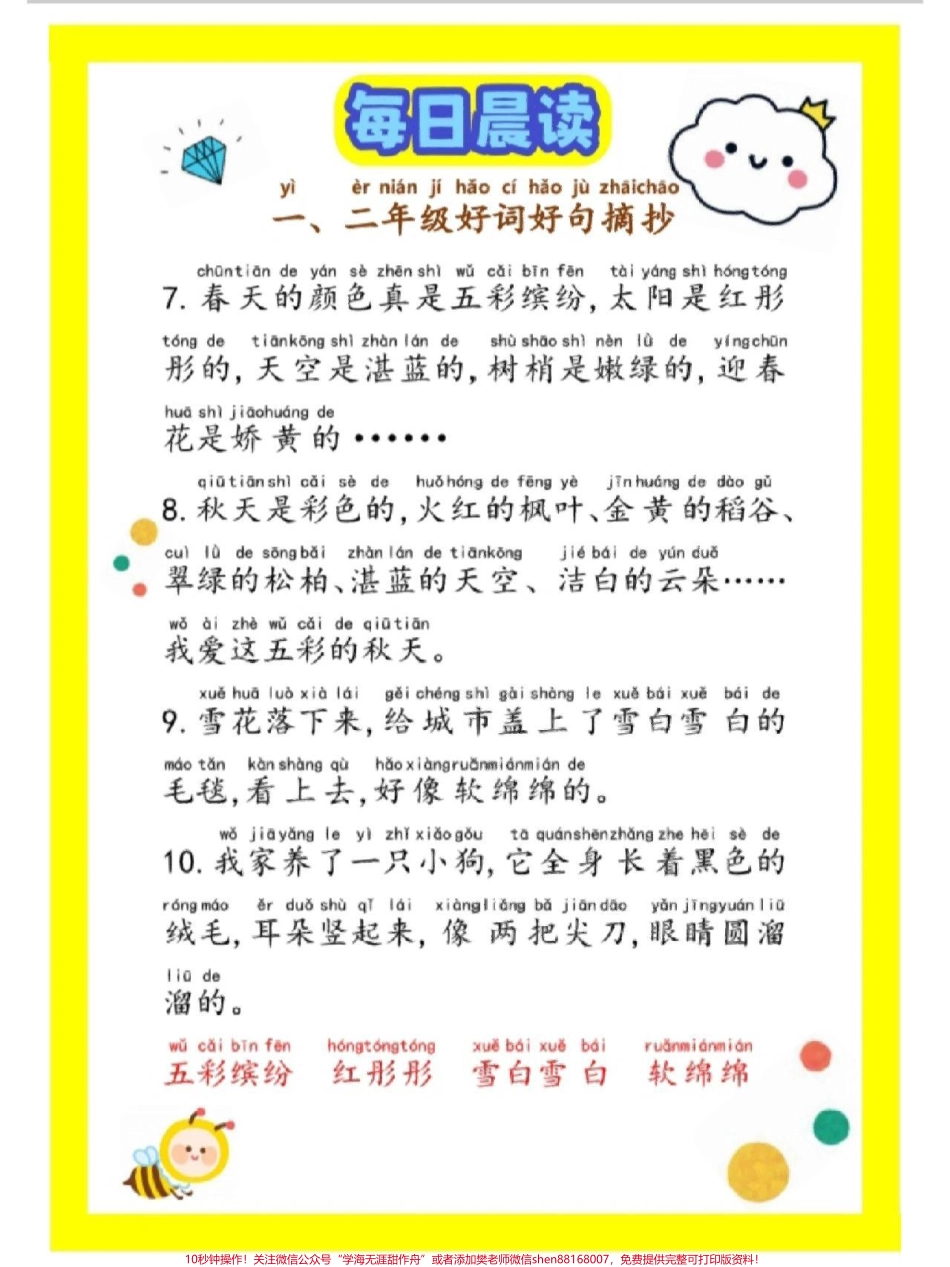 每日晨读
yì èr nián jí hǎo cí hǎo jù zhāichāo
一、二年级好词好句摘抄
chūntiān de yán sè zhēnshì wǔ cǎi bīn fēn tài yáng shì hóngtóng
7. 春天的颜色真是五彩缤纷,太阳是红彤
tóng de tiānkōng shì zhàn lán de shù shāo shì nèn lǜ de yíngchūn
彤的,天空是湛蓝的,树梢是嫩绿的,迎春
huā shì jiāohuáng de
花是娇黄的······
qiūtiān shì cǎi sè de huǒhóng de fēng yè jīnhuáng de dào gǔ
8. 秋天是彩色的,火红的枫叶、金黄的稻谷、
cuì lǜ de sōngbǎi zhàn lán de tiānkōng jié bái de yún duǒ
翠绿的松柏、湛蓝的天空、洁白的云朵······
wǒ ài zhè wǔ cǎi de qiūtiān
我爱这五彩的秋天。
xuě huā luò xià lái gěi chéng shì gài shàng le xuě bái xuě bái de
9. 雪花落下来,给城市盖上了雪白雪白的
máo tǎn kàn shàng qù hǎo xiàngruǎnmiánmián de
毛毯,看上去,好像软绵绵的。
wǒ jiāyǎng le yì zhǐ xiǎogǒu tā quánshēnzhǎng zhe hēi sè de
10. 我家养了一只小狗,它全身长着黑色的
róngmáo ěr duǒ shù qǐ lái xiàngliǎng bǎ jiāndāo yǎn jīngyuán liū
绒毛,耳朵竖起来,像两把尖刀,眼睛圆溜
liū de
溜的。
wǔ cǎi bīn fēn hóngtóngtóng xuě bái xuě bái ruǎnmiánmián
五彩缤纷 红彤彤 雪白雪白 软绵绵
10秒钟操作!关注微信公众号“学海无涯甜作舟”或者添加樊老师微信shen88168007,免费提供完整可打印版资料!